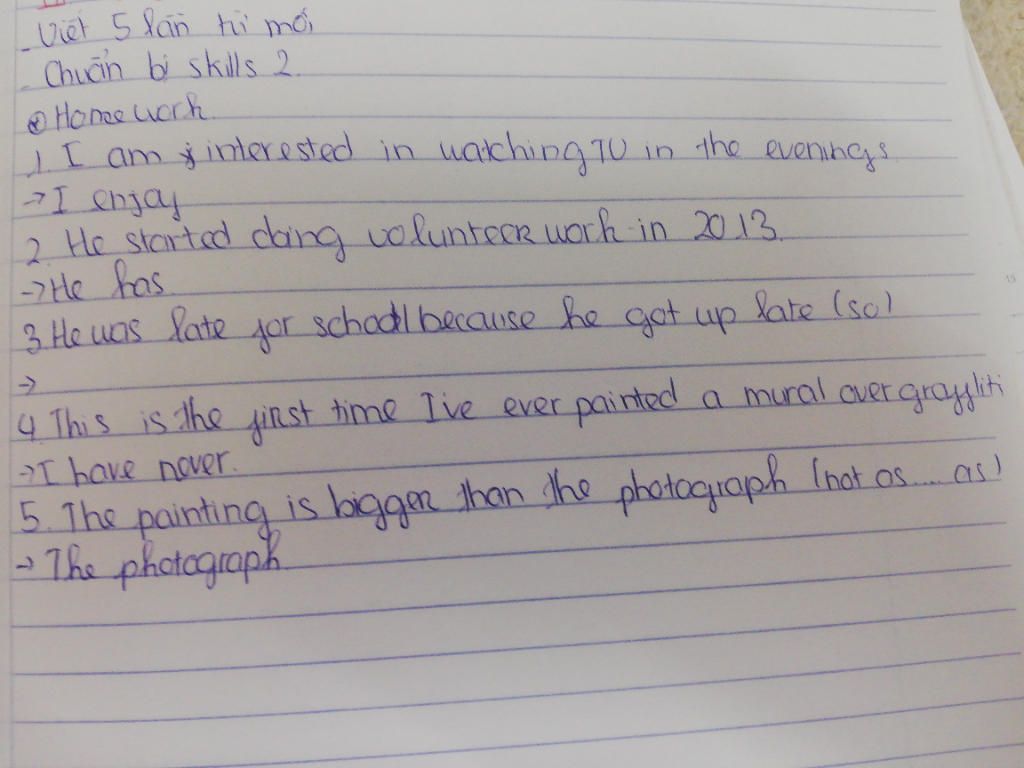 - Viết 5 lần từ mới
- Chuẩn bị skills 2.
⊕ Homework
1. I am interested in watching TV in the evenings
→ I enjoy
2. He started doing volunteer work in 2013.
→ He has
3. He was late for school because he got up late (so)
→
4. This is the first time I've ever painted a mural over graffiti
→ I have never.
5. The painting is bigger than the photograph (not as.... as)
→ The photograph